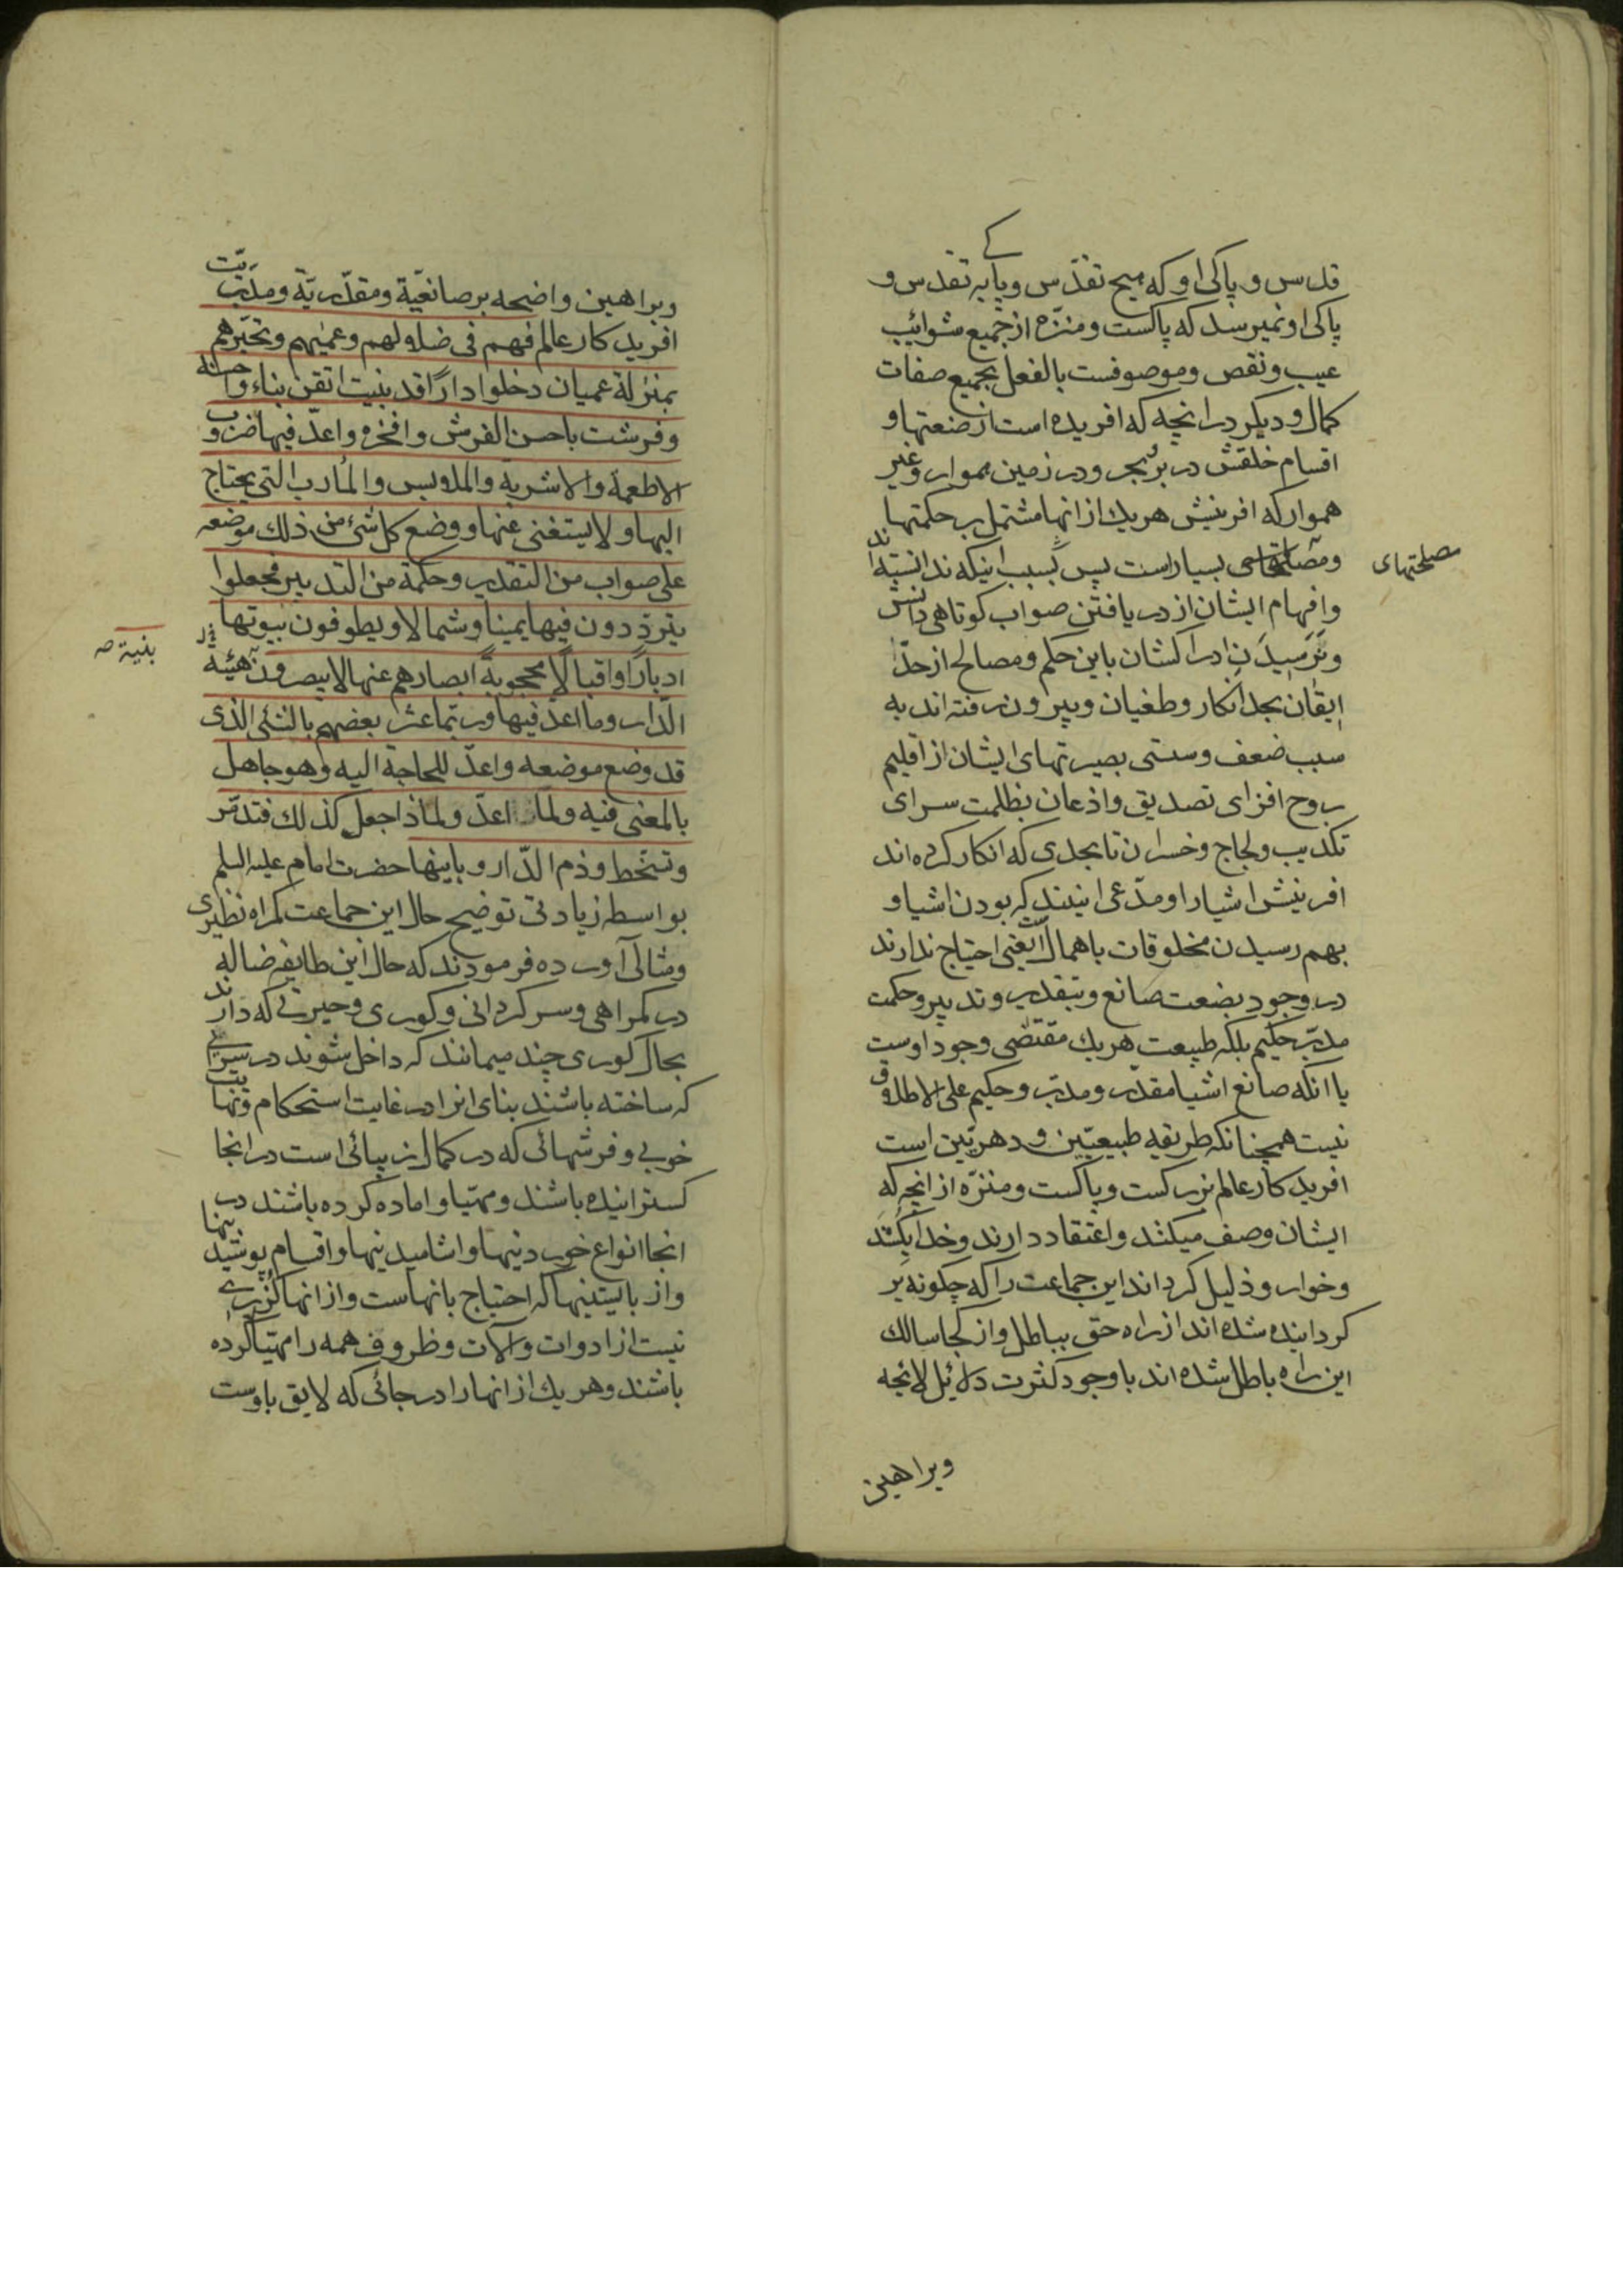 قدس و پاکی او که هیچ تقدّس و پاکی بپایه تقدس و
پاکی او نمیرسد که پاکست و منزّه از جمیع شوائب
عیب و نقص و موصوفست بالفعل بجمیع صفات
کمال و دیکر در انچه که افریده است از صنعتها و
اقسام خلقش در برّ و بحر و در زمین هموار و غیر
هموار که افرینش هریك از انها مشتمل بر حکمتها
و مصلحتهای بسیار است پس بسبب اینکه ندانسته‌اند
مصلحتهای
و افهام ایشان از دریافتن صواب کوتاهی
و نرسیدن ادراکشان باین حکم و مصالح از حدّ
ایقان بحد انکار و طغیان و بیرون رفته اند به
سبب ضعف و سستی بصیرتهای ایشان از اقلیم
روح افزای تصدیق و اذعان بظلمت سرای
تکذیب و لجاج و خسران تا بحدی که انکار کرده اند
افرینش اشیا را و مدّعی اینند که بودن اشیا و
بهم رسیدن مخلوقات باهمالست یعنی احتیاج ندارند
در وجود بصنعت صانع و بتقدیر و تدبیر و حکمت
مدبّر حکیم بلکه طبیعت هریك مقتضی وجود اوست
یا انکه صانع اشیا مقدّر و مدبّر و حکیم علی الاطلاق
نیست همچنانکه طریقه طبیعیّین و دهریّین است
افریدکار عالم بزرکست و پاکست و منزّه از انچه که
ایشان وصف میکنند و اعتقاد دارند و خدا بکشد
و خوار و ذلیل کرداند این جماعت را که چکونه بر
کردانیده شده اند از راه حق بباطل و از کجا سالك
این راه باطل شده اند با وجود کثرت دلائل لایحه
وبراهین
وبراهین واضحه بر صانعیّة و مقدّریّة و مدبّریّت
افریدکار عالم فهم فی ضلالهم وعمیٰهم وتحیّرهم
بمنزلة عمیان دخلوا دارًا قد بنیت اتقن بناء واحسنه
وفرشت باحسن الفرش وافخره واعدّ فیها ضروب
الاطعمة والاشربة والملابس والمأرب التی یحتاج
الیها ولا یستغنی عنها ووضع کل شیء من ذلك موضعه
علی صواب من التقدیر وحکمة من التدبیر فجعلوا
یتردّدون فیها یمینا وشمالا ویطوفون بیوتها
ادبارًا واقبالًا محجوبة ابصارهم عنها لا یبصرون هیئة
بنیة صه
الدّار وما اعدّ فیها وربّما عثر بعضهم بالشیٔ الذی
قد وضع موضعه واعدّ للحاجة الیه وهو جاهل
بالمعنی فیه ولما اعدّ ولماذا جعل کذلك فتذمّر
وتسخّط وذم الدّار وبانیها حضرت امام علیه السلم
بواسطه زیادتی توضیح حال این جماعت کمراه نظیری
و مثالی آورده فرمودند که حال این طایفه ضاله
در کمراهی و سرکردانی و کوری و حیرتی که دارند
بحال کوری چند میمانند که داخل شوند در سرای
که ساخته باشند بنای انرا در غایت استحکام و نهایت
خوبی و فرشهائی که در کمال زیبائی است در انجا
کسترانیده باشند و مهیّا و اماده کرده باشند در
انجا انواع خوردنیها و اشامیدنیها و اقسام پوشیدنیها
و از بایستنیها که احتیاج بانهاست و از انها کزیری
نیست از ادوات و آلات و ظروف همه را مهیّا کرده
باشند و هریك از انها را در جائی که لایق باوست